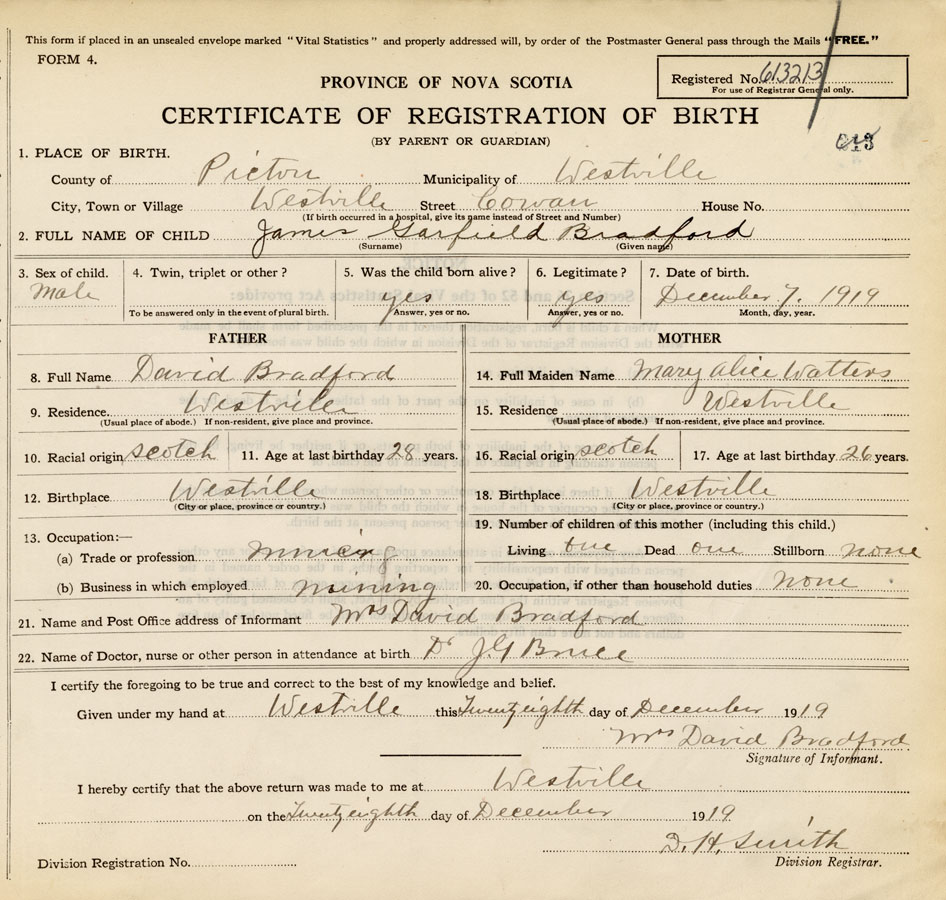 This form if placed in an unsealed envelope marked "Vital Statistics" and properly addressed will, by order of the Postmaster General pass through the Mails "FREE."
FORM 4.
Registered No. 613213
For use of Registrar General only.
PROVINCE OF NOVA SCOTIA
CERTIFICATE OF REGISTRATION OF BIRTH
(BY PARENT OR GUARDIAN)
1. PLACE OF BIRTH.
County of Pictou Municipality of Westville
City, Town or Village Westville Street Cowan House No.
(If birth occurred in a hospital, give its name instead of Street and Number)
2. FULL NAME OF CHILD James Garfield Bradford
(Surname) (Given name)
3. Sex of child. 4. Twin, triplet or other? 5. Was the child born alive? 6. Legitimate? 7. Date of birth.
Male yes yes December 7. 1919
To be answered only in the event of plural birth. Answer, yes or no. Answer, yes or no. Month, day, year.
FATHER MOTHER
8. Full Name David Bradford 14. Full Maiden Name Mary Alice Watters
9. Residence. Westville 15. Residence Westville
(Usual place of abode.) If non-resident, give place and province. (Usual place of abode.) If non-resident, give place and province.
10. Racial origin scotch 11. Age at last birthday 28 years. 16. Racial origin scotch 17. Age at last birthday 26 years.
12. Birthplace Westville 18. Birthplace Westville
(City or place, province or country.) (City or place, province or country.)
19. Number of children of this mother (including this child.)
13. Occupation:—
(a) Trade or profession mining Living one Dead one Stillborn none
(b) Business in which employed mining 20. Occupation, if other than household duties none
21. Name and Post Office address of Informant Mrs David Bradford
22. Name of Doctor, nurse or other person in attendance at birth Dr J.G Bruce
I certify the foregoing to be true and correct to the best of my knowledge and belief.
Given under my hand at Westville this Twenty eighth day of December 1919
Mrs David Bradford
Signature of Informant.
I hereby certify that the above return was made to me at Westville
on the Twenty eighth day of December 1919
D. H. Smith
Division Registration No. Division Registrar.